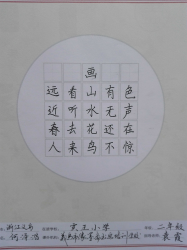 画
远看山有色
近听水无声
春去花还在
人来鸟不惊
浙江义乌 宾王小学 二年级